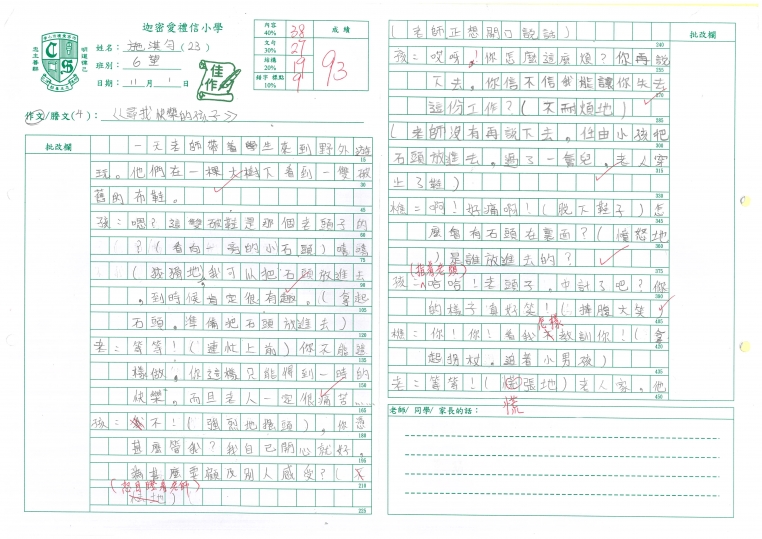 迦密愛禮信小學
姓名：施淇勻(23)
班別：6望
日期：11月1日
內容 40% 38
文句 30% 27
結構 20% 19
錯字 標點 10% 9
成績
93
佳作
作文/謄文(4)：《尋找快樂的孩子》
批改欄
一天老師帶着學生來到野外遊
玩。他們在一棵大樹下看到一雙破
舊的布鞋。
孩：嗯？這雙破鞋是那個老頭子的
？(看向一旁的小石頭)嘻嘻
(狡猾地)我可以把石頭放進去
，到時候肯定很有趣。(拿起
石頭，準備把石頭放進去)
老：等等！(連忙上前)你不能這
樣做，你這樣只能得到一時的
快樂。而且老人一定很痛苦……
孩：不！(強烈地搖頭)，你憑
甚麼管我？我自己開心就好，
為甚麼要顧及別人感受？(
(怒目瞪着老師)
(老師正想開口說話)
孩：哎呀！你怎麼這麼煩？你再說
下去，你信不信我能讓你失去
這份工作？(不耐煩地)
(老師沒有再說下去，任由小孩把
石頭放進去。過了一會兒，老人穿
上了鞋)
樵：啊！好痛啊！(脫下鞋子)怎
麼會有石頭在裏面？(憤怒地
)是誰放進去的？
(指着老頭)
孩：哈哈！老頭子，中計了吧？你
的樣子真好笑！(捧腹大笑)
怎樣
樵：你！你！看我教訓你！(拿
起拐杖，追着小男孩)
老：等等！(慌張地)老人家，他
慌
批改欄
老師/ 同學/ 家長的話：